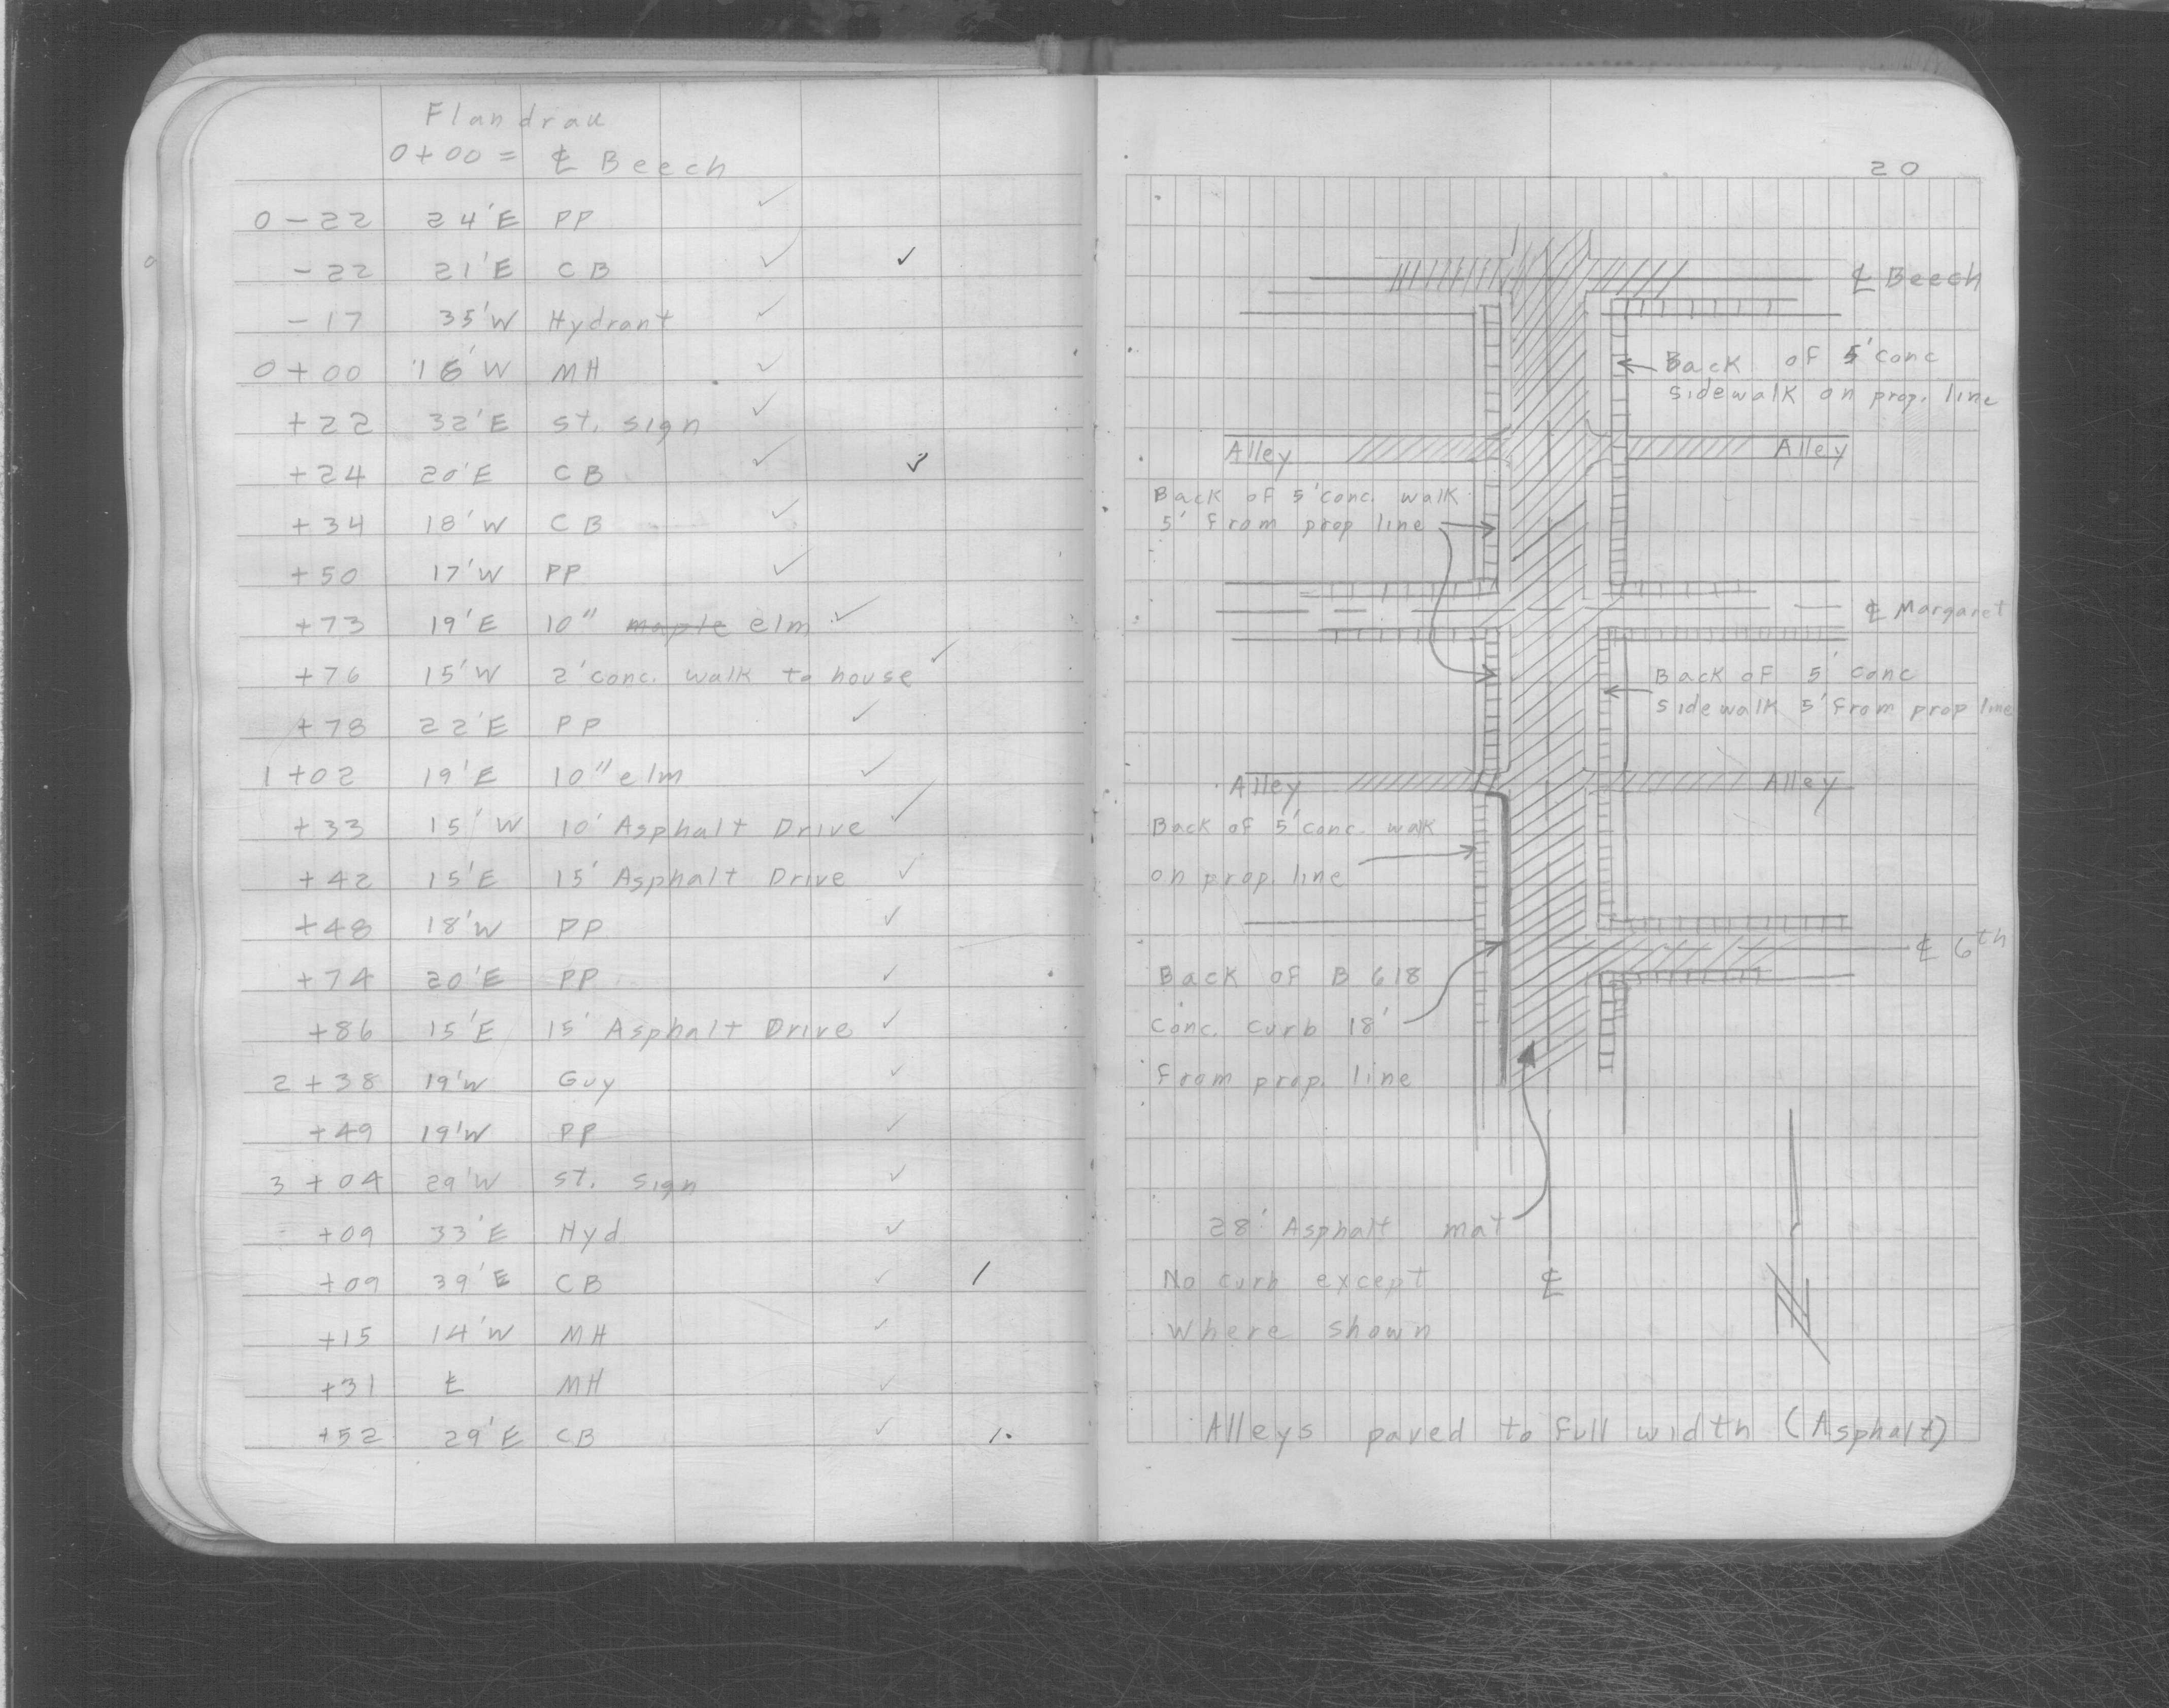 Flandrau
0+00 = ℄ Beech
0-22 24'E PP ✓
-22 21'E CB ✓ ✓
-17 35'W Hydrant ✓
0+00 16'W MH ✓
+22 32'E St. Sign ✓
+24 20'E CB ✓ ✓
+34 18'W CB ✓
+50 17'W PP ✓
+73 19'E 10" maple elm ✓
+76 15'W 2' conc. walk to house ✓
+78 22'E PP ✓
1+02 19'E 10" elm ✓
+33 15'W 10' Asphalt Drive ✓
+42 15'E 15' Asphalt Drive ✓
+48 18'W PP ✓
+74 20'E PP ✓
+86 15'E 15' Asphalt Drive ✓
2+38 19'W Guy ✓
+49 19'W PP ✓
3+04 29'W St. Sign ✓
+09 33'E Hyd ✓
+09 39'E CB ✓ /
+15 14'W MH ✓
+31 ℄ MH ✓
+52 29'E CB ✓ /.
20
℄ Beech
Back of 5' conc
sidewalk on prop. line
Alley
Alley
Back of 5' conc. walk
5' from prop line
℄ Margaret
Back of 5' conc
sidewalk 5' from prop line
Alley
Alley
Back of 5' conc. wak
on prop. line
℄ 6th
Back of B 618
conc. curb 18'
from prop. line
28' Asphalt mat
No curb except
where shown
℄
N
Alleys paved to full width (Asphalt)